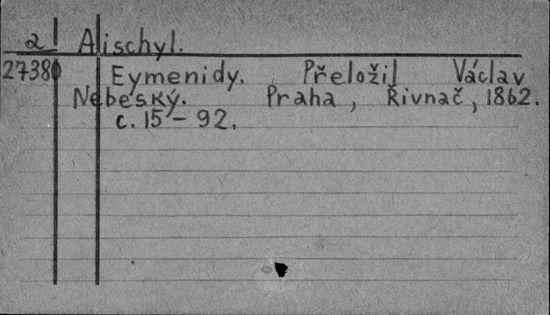 a Aischyl.
27380 Eymenidy. Přeložil Václav
Nebeský. Praha, Řivnač, 1862.
c. 15 - 92.